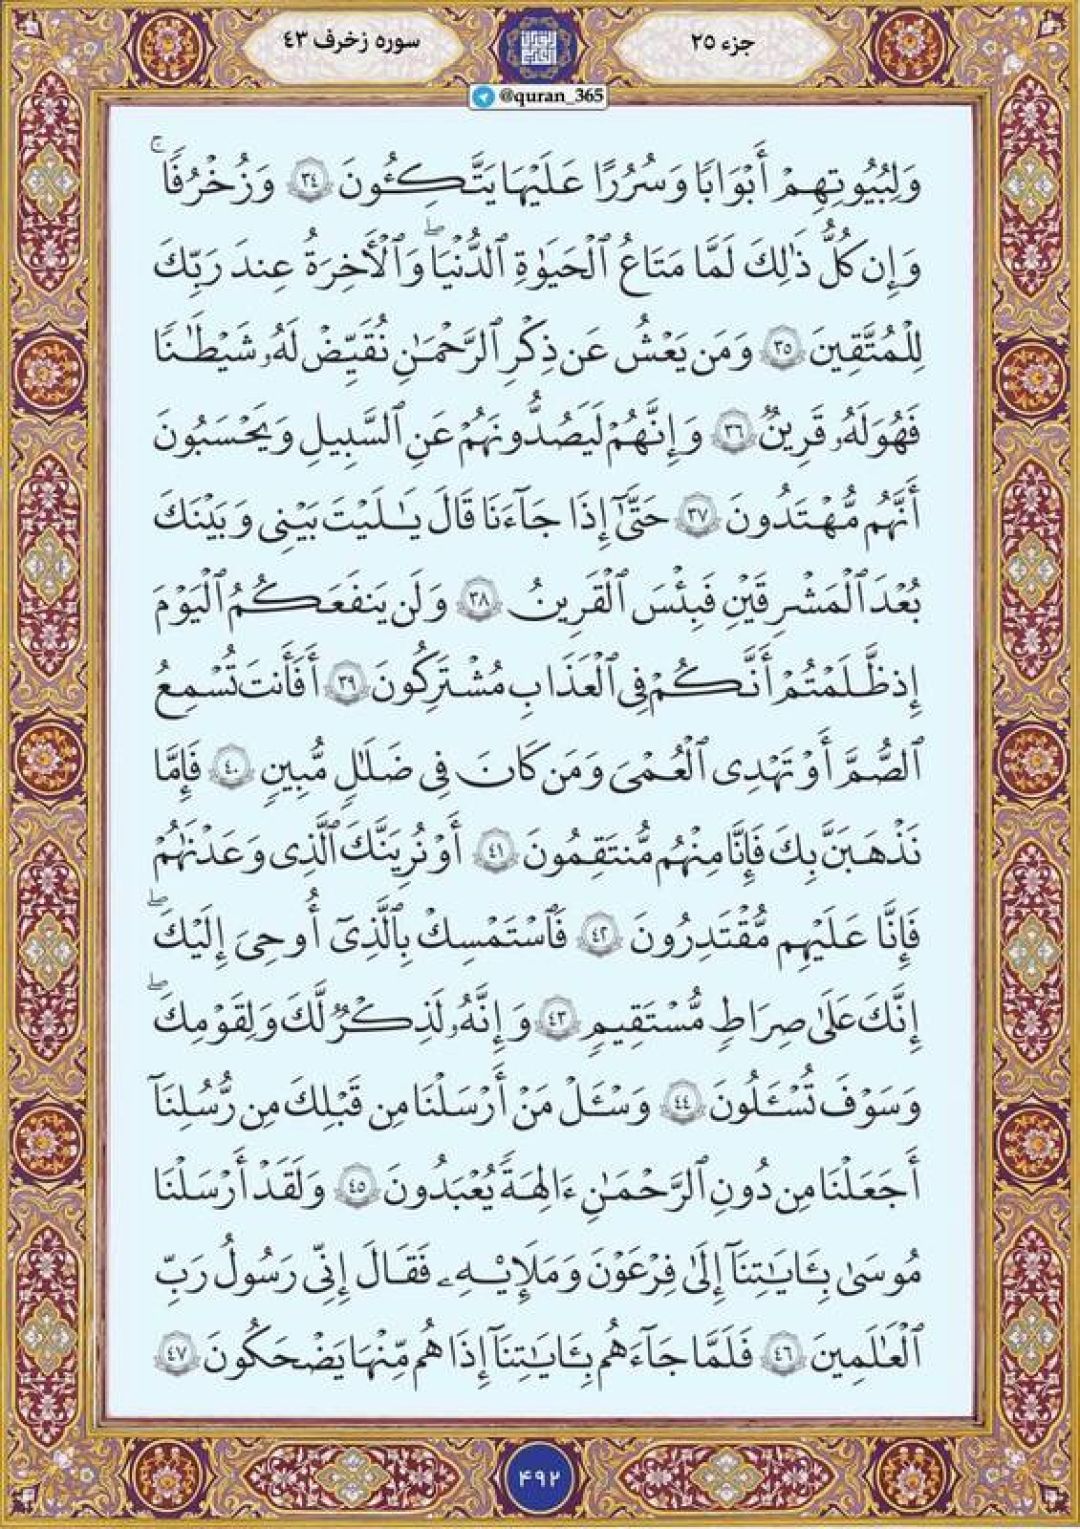 جزء ۲۵
سوره زخرف ۴۳
@quran_365
وَلِبُيُوتِهِمْ أَبْوَٰبًا وَسُرُرًا عَلَيْهَا يَتَّكِـُٔونَ ٣٤ وَزُخْرُفًا ۚ
وَإِن كُلُّ ذَٰلِكَ لَمَّا مَتَاعُ ٱلْحَيَوٰةِ ٱلدُّنْيَا ۖ وَٱلْأَخِرَةُ عِندَ رَبِّكَ
لِلْمُتَّقِينَ ٣٥ وَمَن يَعْشُ عَن ذِكْرِ ٱلرَّحْمَـٰنِ نُقَيِّضْ لَهُۥ شَيْطَـٰنًا
فَهُوَ لَهُۥ قَرِينٌ ٣٦ وَإِنَّهُمْ لَيَصُدُّونَهُمْ عَنِ ٱلسَّبِيلِ وَيَحْسَبُونَ
أَنَّهُم مُّهْتَدُونَ ٣٧ حَتَّىٰٓ إِذَا جَآءَنَا قَالَ يَـٰلَيْتَ بَيْنِى وَبَيْنَكَ
بُعْدَ ٱلْمَشْرِقَيْنِ فَبِئْسَ ٱلْقَرِينُ ٣٨ وَلَن يَنفَعَكُمُ ٱلْيَوْمَ
إِذ ظَّلَمْتُمْ أَنَّكُمْ فِى ٱلْعَذَابِ مُشْتَرِكُونَ ٣٩ أَفَأَنتَ تُسْمِعُ
ٱلصُّمَّ أَوْ تَهْدِى ٱلْعُمْىَ وَمَن كَانَ فِى ضَلَـٰلٍ مُّبِينٍ ٤٠ فَإِمَّا
نَذْهَبَنَّ بِكَ فَإِنَّا مِنْهُم مُّنتَقِمُونَ ٤١ أَوْ نُرِيَنَّكَ ٱلَّذِى وَعَدْنَـٰهُمْ
فَإِنَّا عَلَيْهِم مُّقْتَدِرُونَ ٤٢ فَٱسْتَمْسِكْ بِٱلَّذِىٓ أُوحِىَ إِلَيْكَ ۖ
إِنَّكَ عَلَىٰ صِرَٰطٍ مُّسْتَقِيمٍ ٤٣ وَإِنَّهُۥ لَذِكْرٌ لَّكَ وَلِقَوْمِكَ ۖ
وَسَوْفَ تُسْـَٔلُونَ ٤٤ وَسْـَٔلْ مَنْ أَرْسَلْنَا مِن قَبْلِكَ مِن رُّسُلِنَآ
أَجَعَلْنَا مِن دُونِ ٱلرَّحْمَـٰنِ ءَالِهَةً يُعْبَدُونَ ٤٥ وَلَقَدْ أَرْسَلْنَا
مُوسَىٰ بِـَٔايَـٰتِنَآ إِلَىٰ فِرْعَوْنَ وَمَلَإِيْهِۦ فَقَالَ إِنِّى رَسُولُ رَبِّ
ٱلْعَـٰلَمِينَ ٤٦ فَلَمَّا جَآءَهُم بِـَٔايَـٰتِنَآ إِذَا هُم مِّنْهَا يَضْحَكُونَ ٤٧
۴۹۲